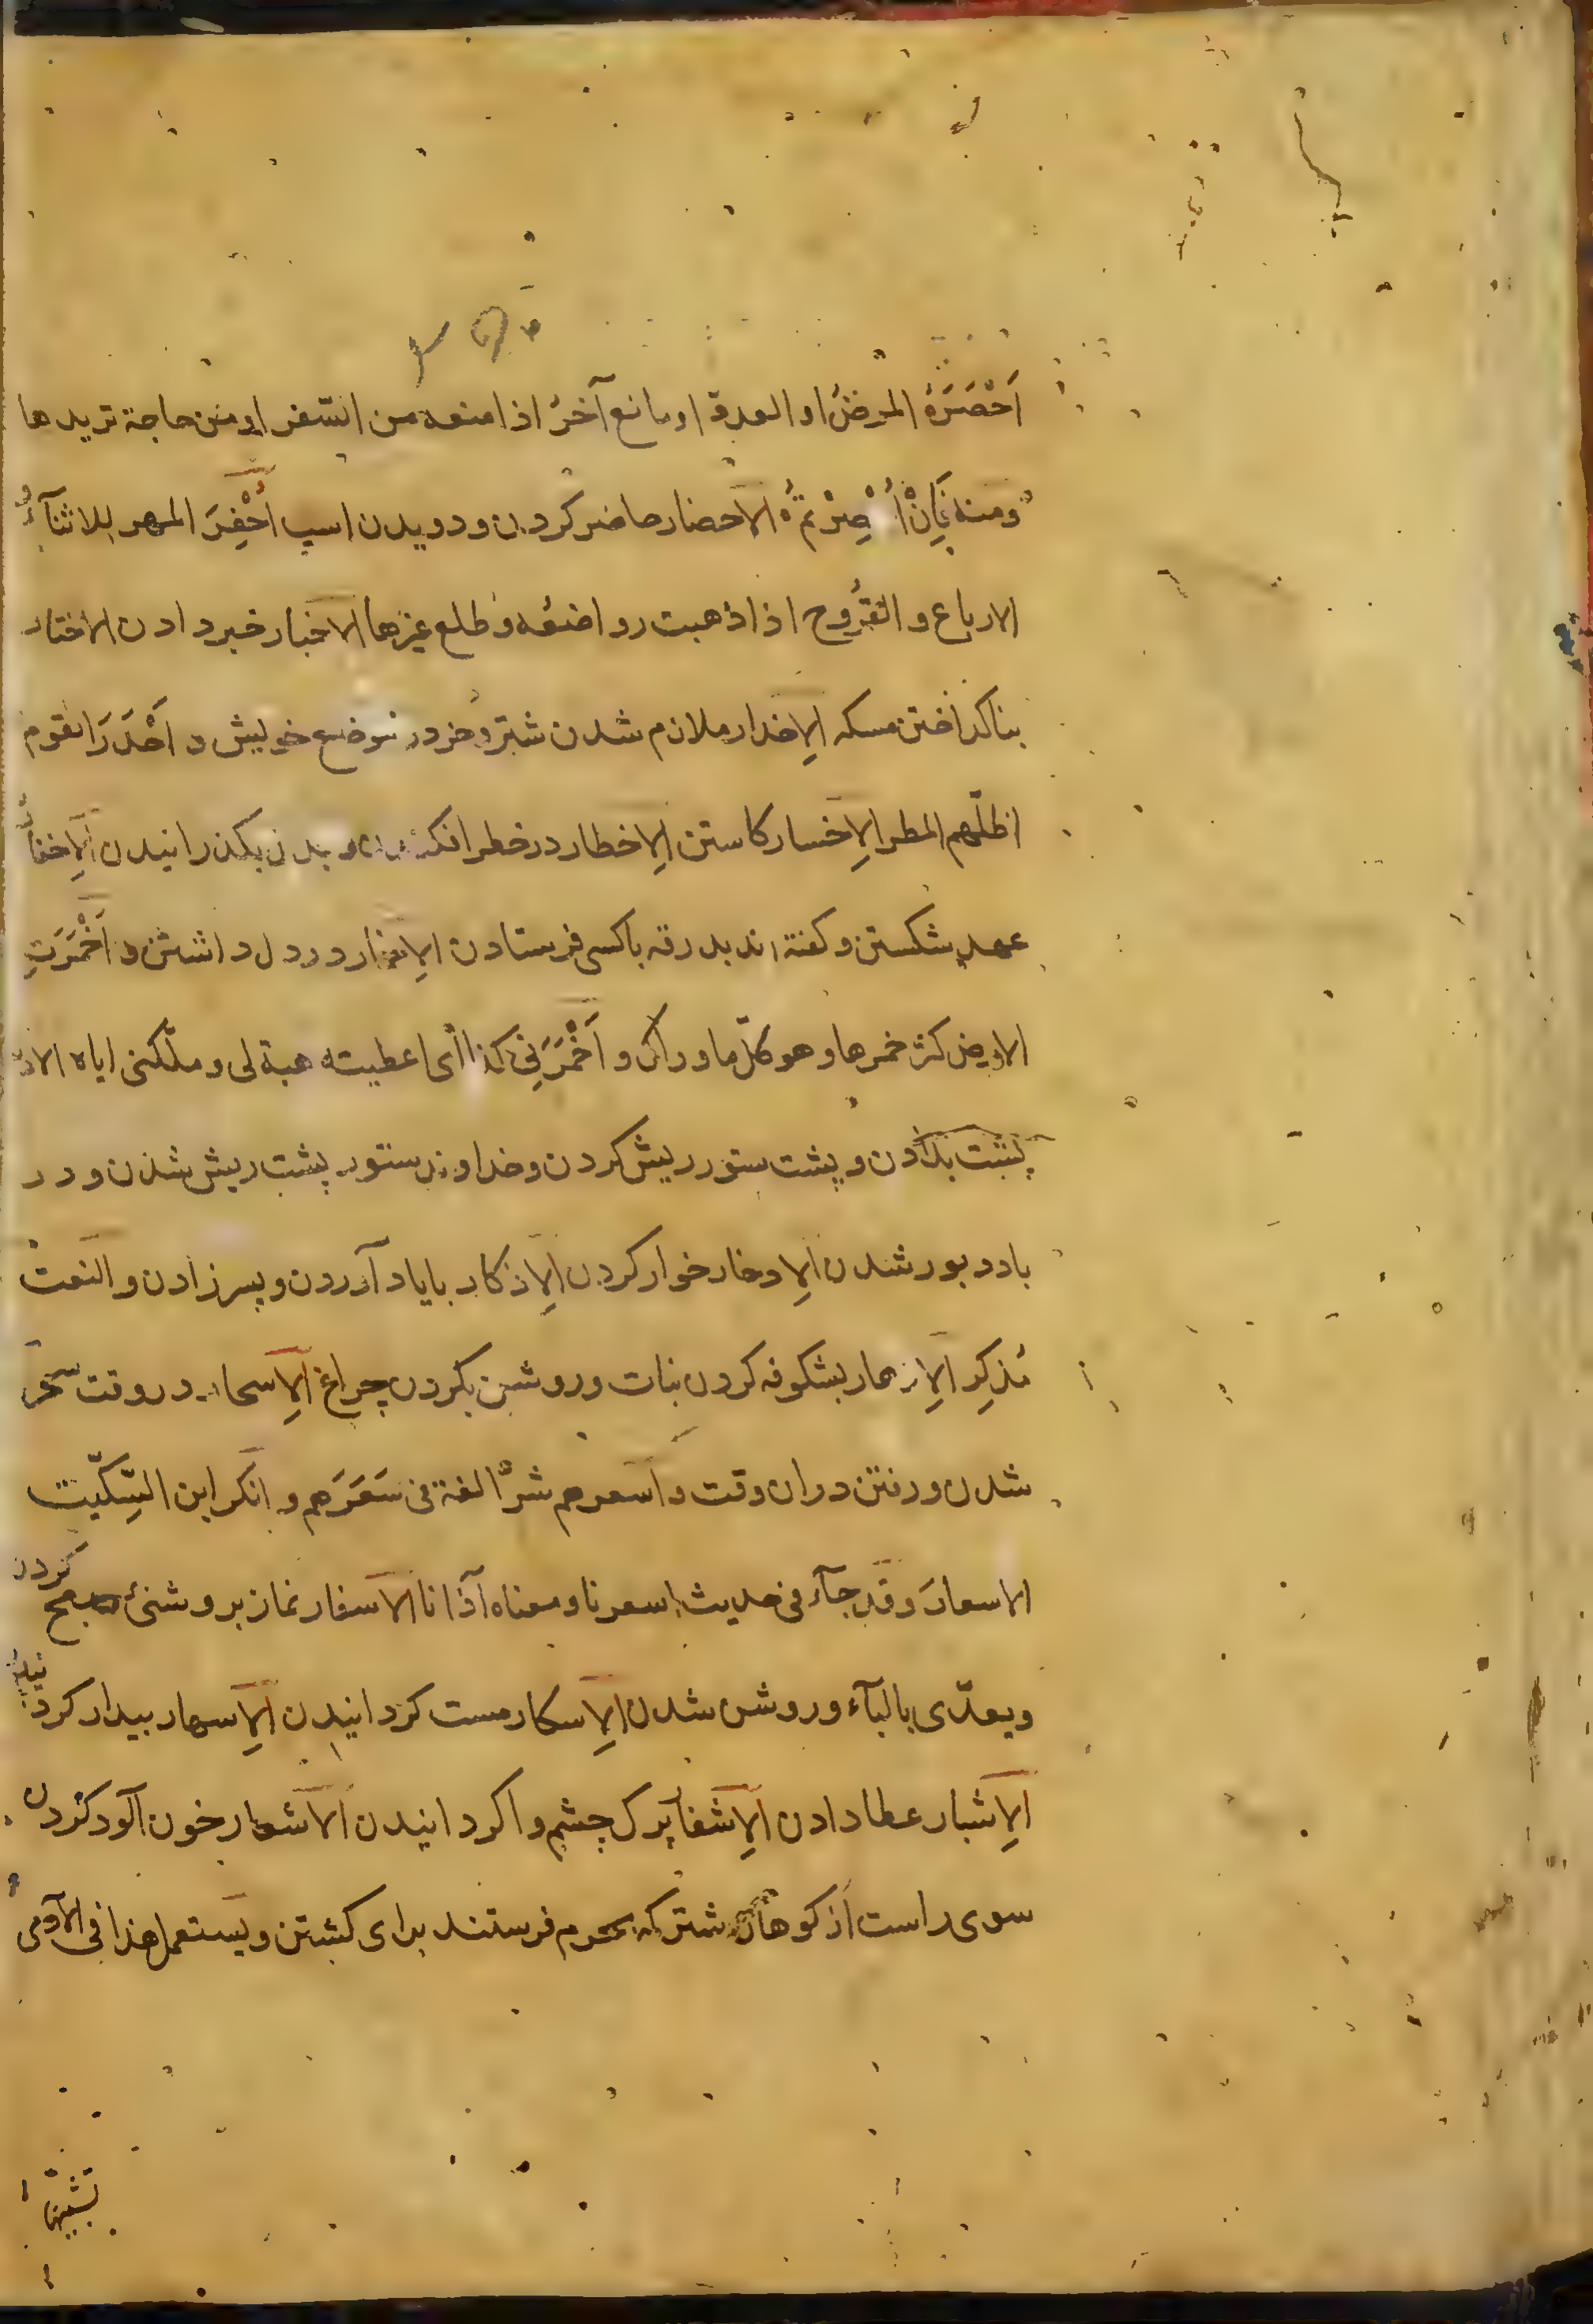 اَحْصَرَهُ المرضُ او العدوّ او مانع آخرُ اذا منعه من السّفر او من حاجة تريدها
ومنه فَاِنْ اُحْصِرْتمْ الاحضار حاضر كردن و دويدن اسپ اُحْفِرَ المهر للاثناءِ
الارباع و القُرُوح اذا ذهبت رواضعُه و طلع غيرها الاخبار خبر دادن الاختار
بناكداختن مسكه الاِخدار ملازم شدن شتر و خر در موضع خويش و اَخْدَرَ القوم
اظلّهم المطر الاِخسار كاستن الاِخطار در خطر افكندن بكذرانيدن الاِخفار
عهد شكستن و كفته اند بدرقه باكسى فرستادن الاِضمار در دل داشتن و اَخْمَرَتِ
الارض كثر خمرها و هو كلّ ما وراك و اَخْمَرَنِى كذا اى اعطيته هبة لى و ملّكنى اياه
پشت بدادن و پشت ستور ريش كردن و خداوند ستور پشت ريش شدن و در
باد دبور شدن الاِدخار خوار كردن الاِذكار باياد آوردن و پسر زادن و النعت
مُذكِر الاِزهار بشكوفه كردن نبات و روشن بكردن چراغ الاِسحار در وقت سحر
شدن و رفتن دران وقت و اسعرهم شرّا لغة فى سَعَرَهم و انكر ابن السِّكّيت
الاسعارَ و قد جآء فى حديث اسعرنا و معناه آذانا الاسفار نماز بروشنئ صبح كردن
ويعدّى بالبآء و روشن شدن الاِسكار مست كردانيدن الاِسهار بيدار كردانيدن
الاِشبار عطا دادن الاِشفار پرك چشم واكردانيدن الاشعار خون آلود كردن
سوى راست از كوهان شتر كه بحرم فرستند براى كشتن و يستعمل هذا فى الآدمى
تشبيها